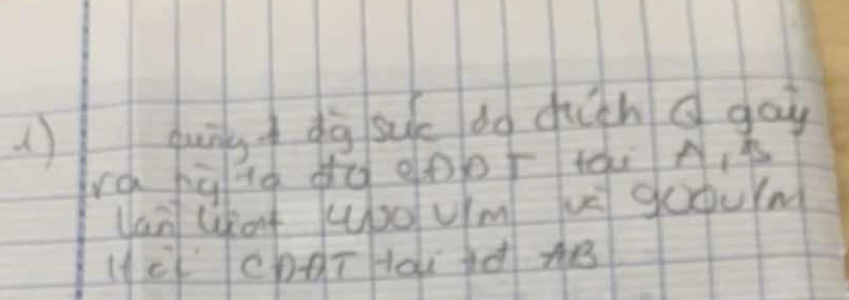 1) cùng 1 đg sức do đtích Q gây
ra ng ta đo CĐĐT tại A, B
lần lượt 400 V/m và 900 V/m
Hỏi CĐĐT tại tđ AB